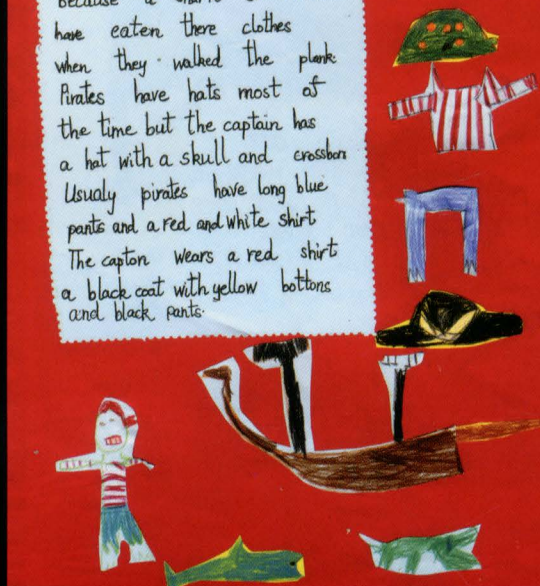 because a
have eaten there clothes
when they walked the plank.
Pirates have hats most of
the time but the captain has
a hat with a skull and crossbon
Usualy pirates have long blue
pants and a red and white shirt
The capton wears a red shirt
a black coat with yellow bottons
and black pants.